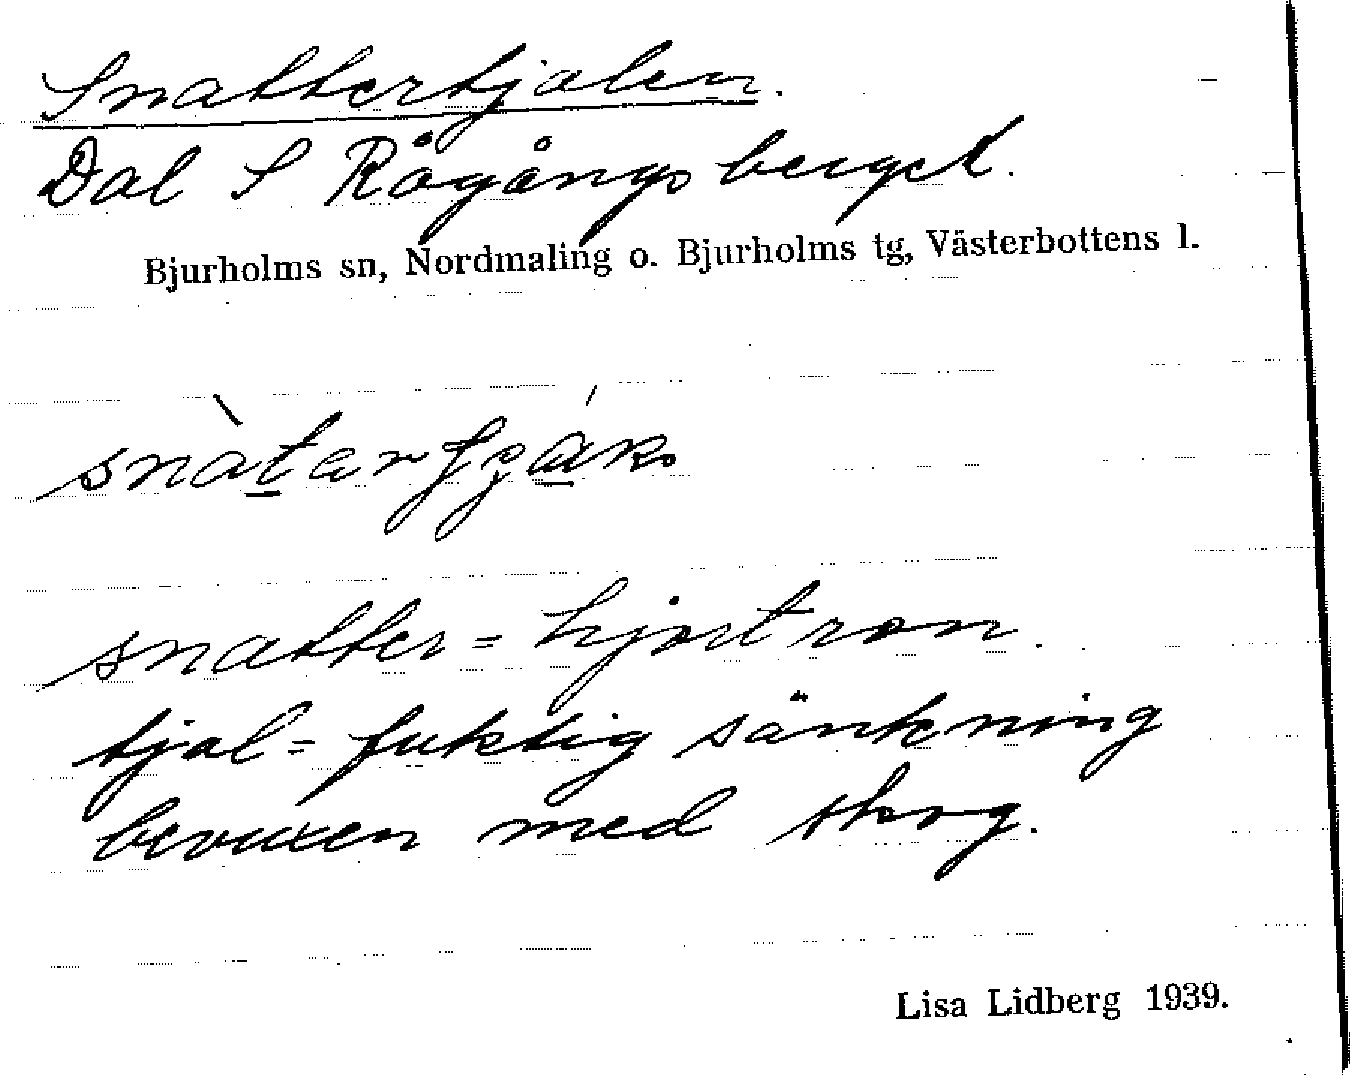 Snattertjalen.
Dal S Rågångsberget.
Bjurholms sn, Nordmaling o. Bjurholms tg, Västerbottens l.
snatter = hjortron.
tjal = fuktig sänkning
bevuxen med skog.
Lisa Lidberg 1939.